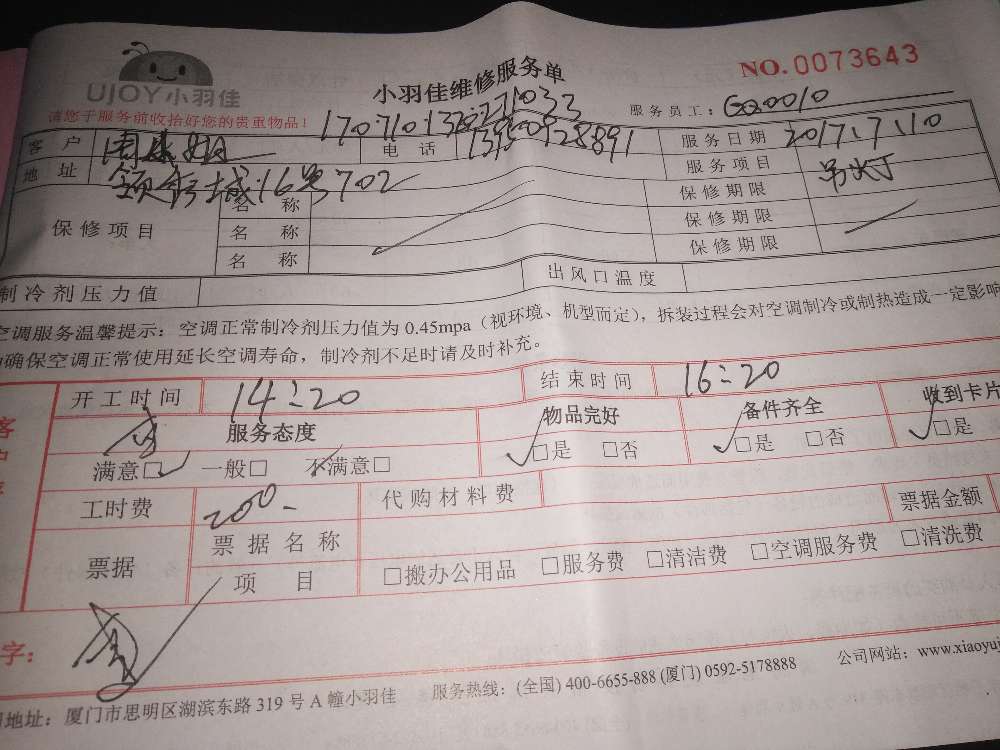 UJOY小羽佳
小羽佳维修服务单
NO.0073643
请您于服务前收拾好您的贵重物品!
服务员工:GQ0010
客户 电话 13950928891 服务日期 2017、7、10
地址 16号702 服务项目 吊水灯
保修项目 名称 保修期限
名称 保修期限
名称 保修期限
制冷剂压力值 出风口温度
空调服务温馨提示:空调正常制冷剂压力值为 0.45mpa(视环境、机型而定),拆装过程会对空调制冷或制热造成一定影响
确保空调正常使用延长空调寿命,制冷剂不足时请及时补充。
开工时间 14:20 结束时间 16:20
服务态度 物品完好 备件齐全 收到卡片
满意□ 一般□ 不满意□ □是 □否 □是 □否 □是
工时费 200- 代购材料费
票据 票据名称 票据金额
项目 □搬办公用品 □服务费 □清洁费 □空调服务费 □清洗费
字:
地址:厦门市思明区湖滨东路 319 号 A 幢小羽佳 服务热线:(全国) 400-6655-888 (厦门) 0592-5178888 公司网站:www.xiaoyuj